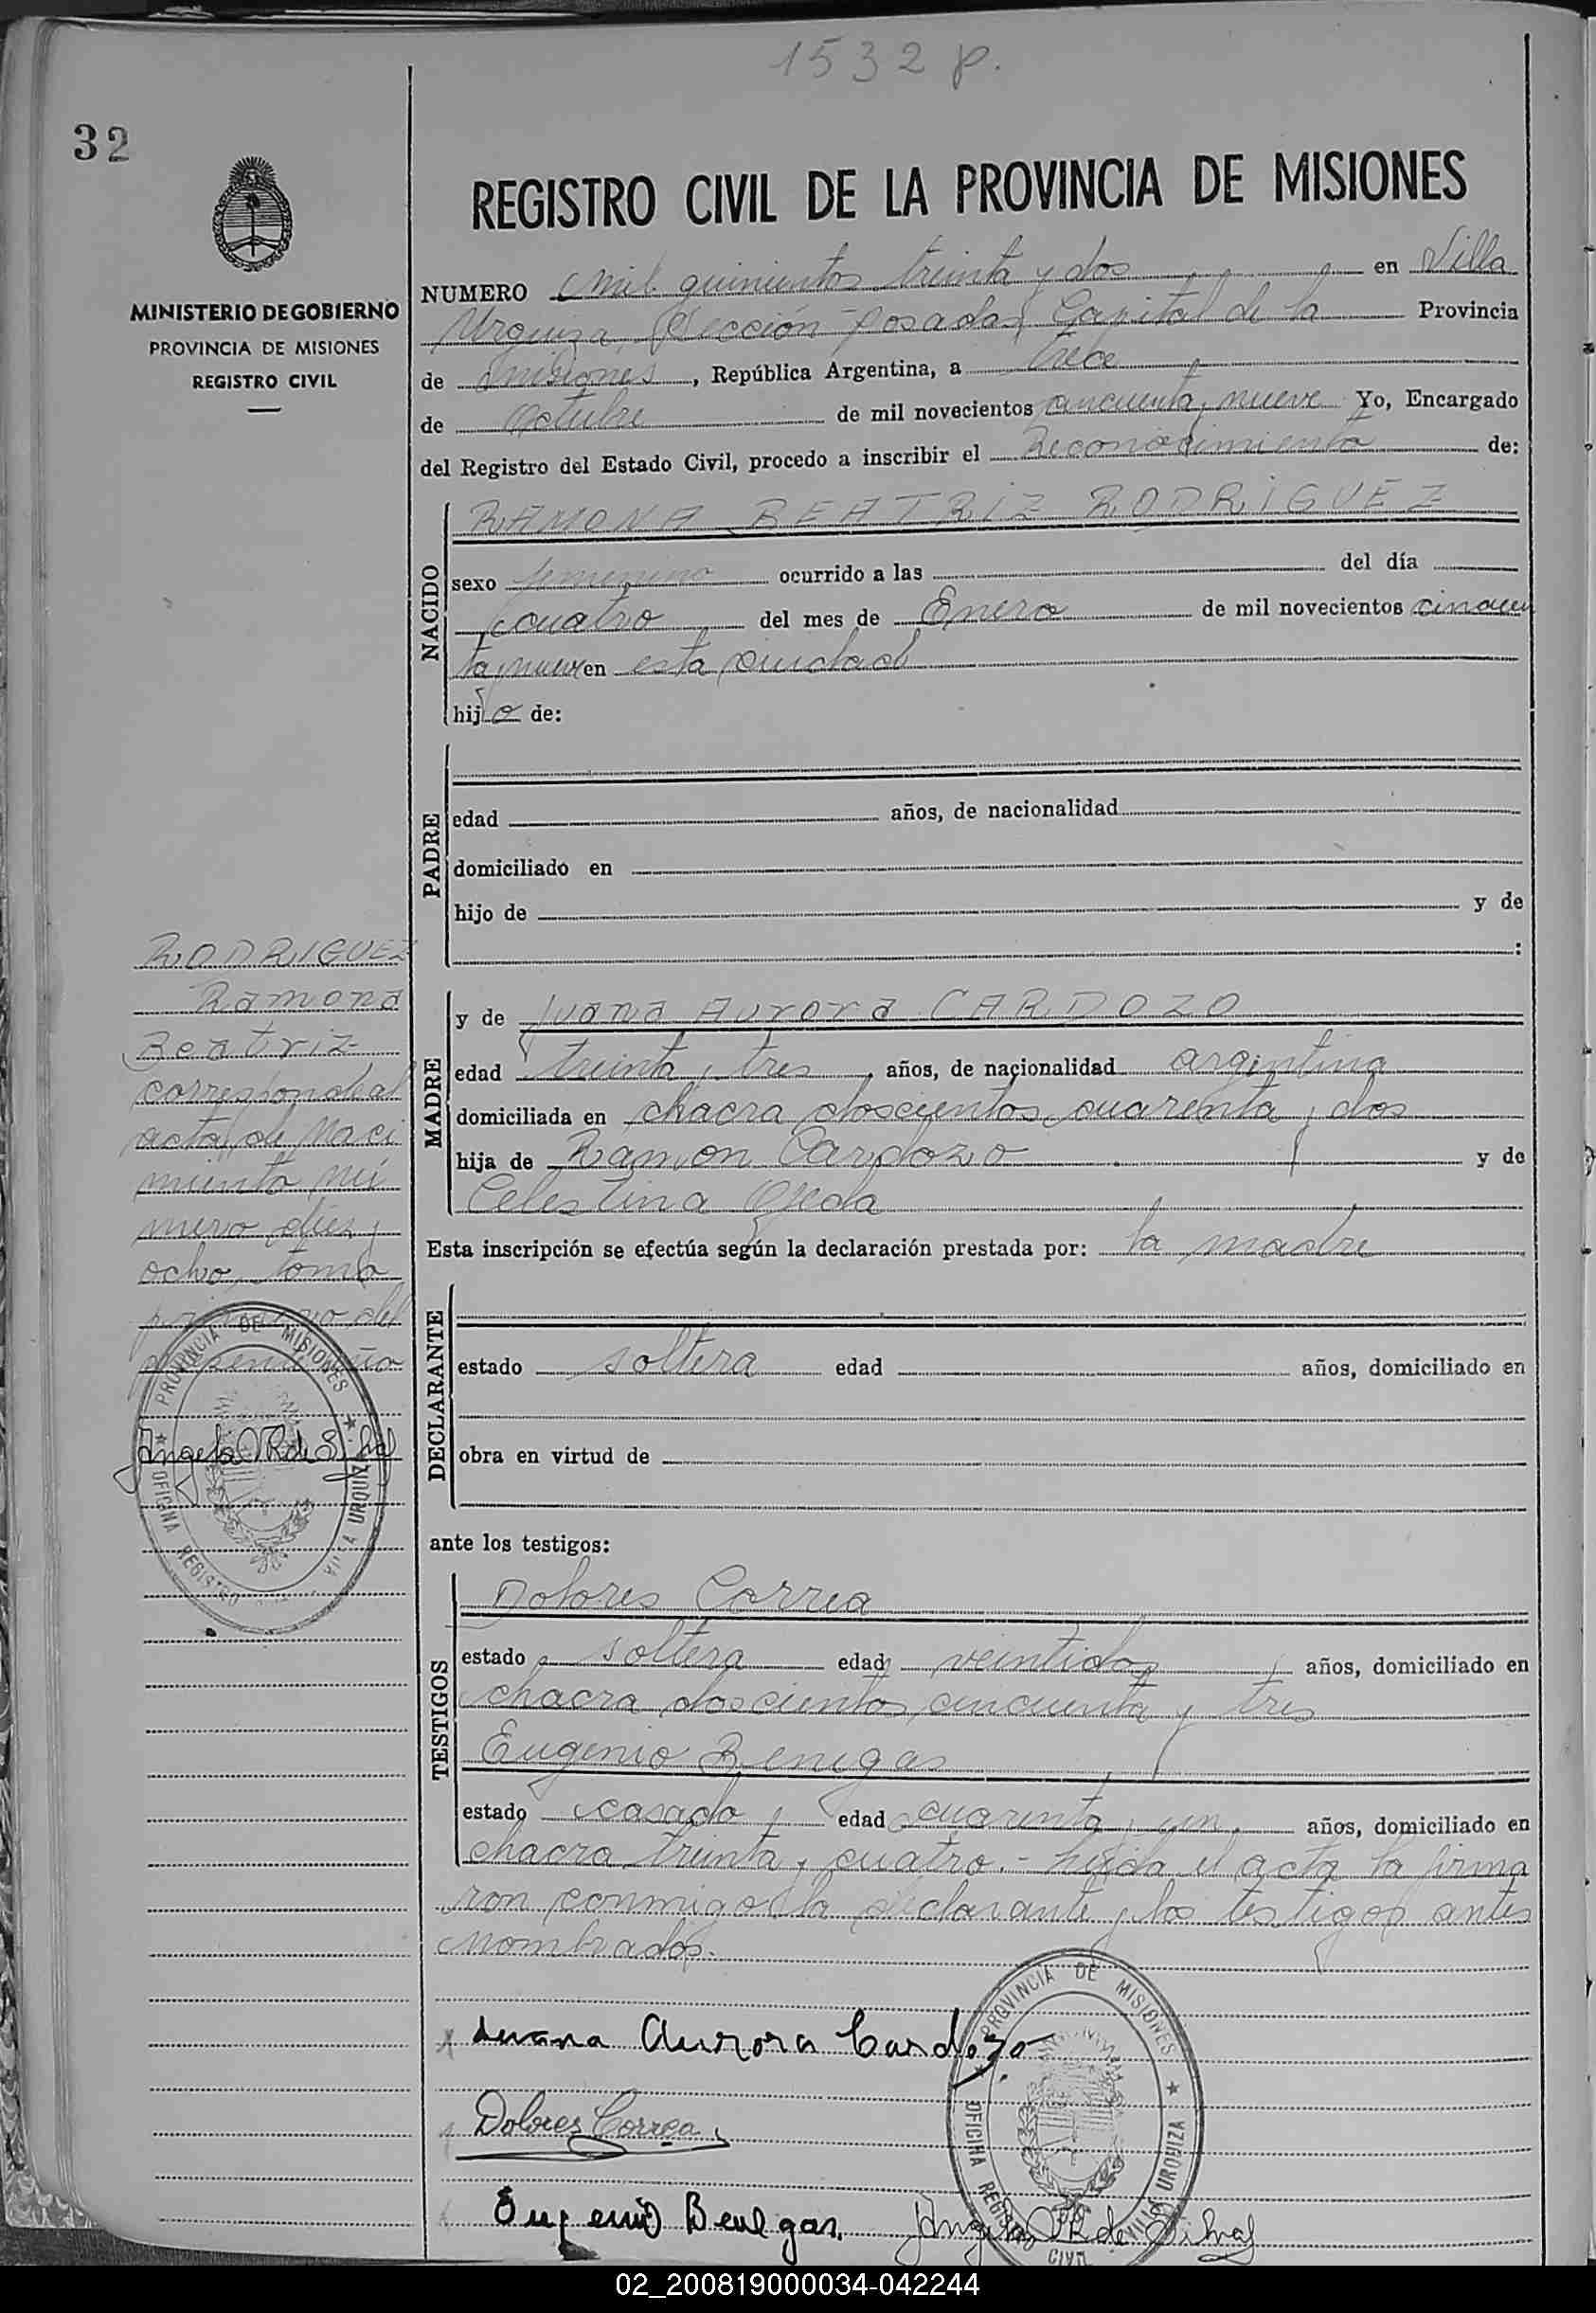 1532 p.
32
MINISTERIO DE GOBIERNO
PROVINCIA DE MISIONES
REGISTRO CIVIL
REGISTRO CIVIL DE LA PROVINCIA DE MISIONES
NUMERO mil quinientos treinta y dos en Villa
Urquiza, Sección Posadas Capital de la Provincia
de Misiones, República Argentina, a trece
de Octubre de mil novecientos cincuenta y nueve Yo, Encargado
del Registro del Estado Civil, procedo a inscribir el Reconocimiento de:
NACIDO
RAMONA BEATRIZ RODRIGUEZ
sexo femenino ocurrido a las del día
cuatro del mes de Enero de mil novecientos cincuen
ta y nueve en esta ciudad
hij o de:
PADRE
edad años, de nacionalidad
domiciliado en
hijo de y de
:
MADRE
y de Juana Aurora CARDOZO
edad treinta y tres años, de nacionalidad argentina
domiciliada en chacra doscientos cuarenta y dos
hija de Ramon Cardozo y de
Celestina Ojeda
Esta inscripción se efectúa según la declaración prestada por: la madre
DECLARANTE
estado soltera edad años, domiciliado en
obra en virtud de
ante los testigos:
TESTIGOS
Dolores Correa
estado soltera edad veintidos años, domiciliado en
chacra doscientos cincuenta y tres
Eugenio Benegas
estado casado edad cuarenta y un años, domiciliado en
chacra treinta y cuatro.- Leida el acta la firma
ron conmigo la declarante y los testigos antes
nombrados.
Juana Aurora Cardozo
Dolores Correa
Eugenio Benegas
Angela R de Silva
PROVINCIA DE MISIONES
OFICINA REGISTRO CIVIL VILLA URQUIZA
RODRIGUEZ
Ramona
Beatriz
corresponde al
acta de Naci
miento nú
mero diez y
ocho, tomo
primero del
presente año
Angela R de Silva
PROVINCIA DE MISIONES
OFICINA REGISTRO VILLA URQUIZA
02_200819000034-042244